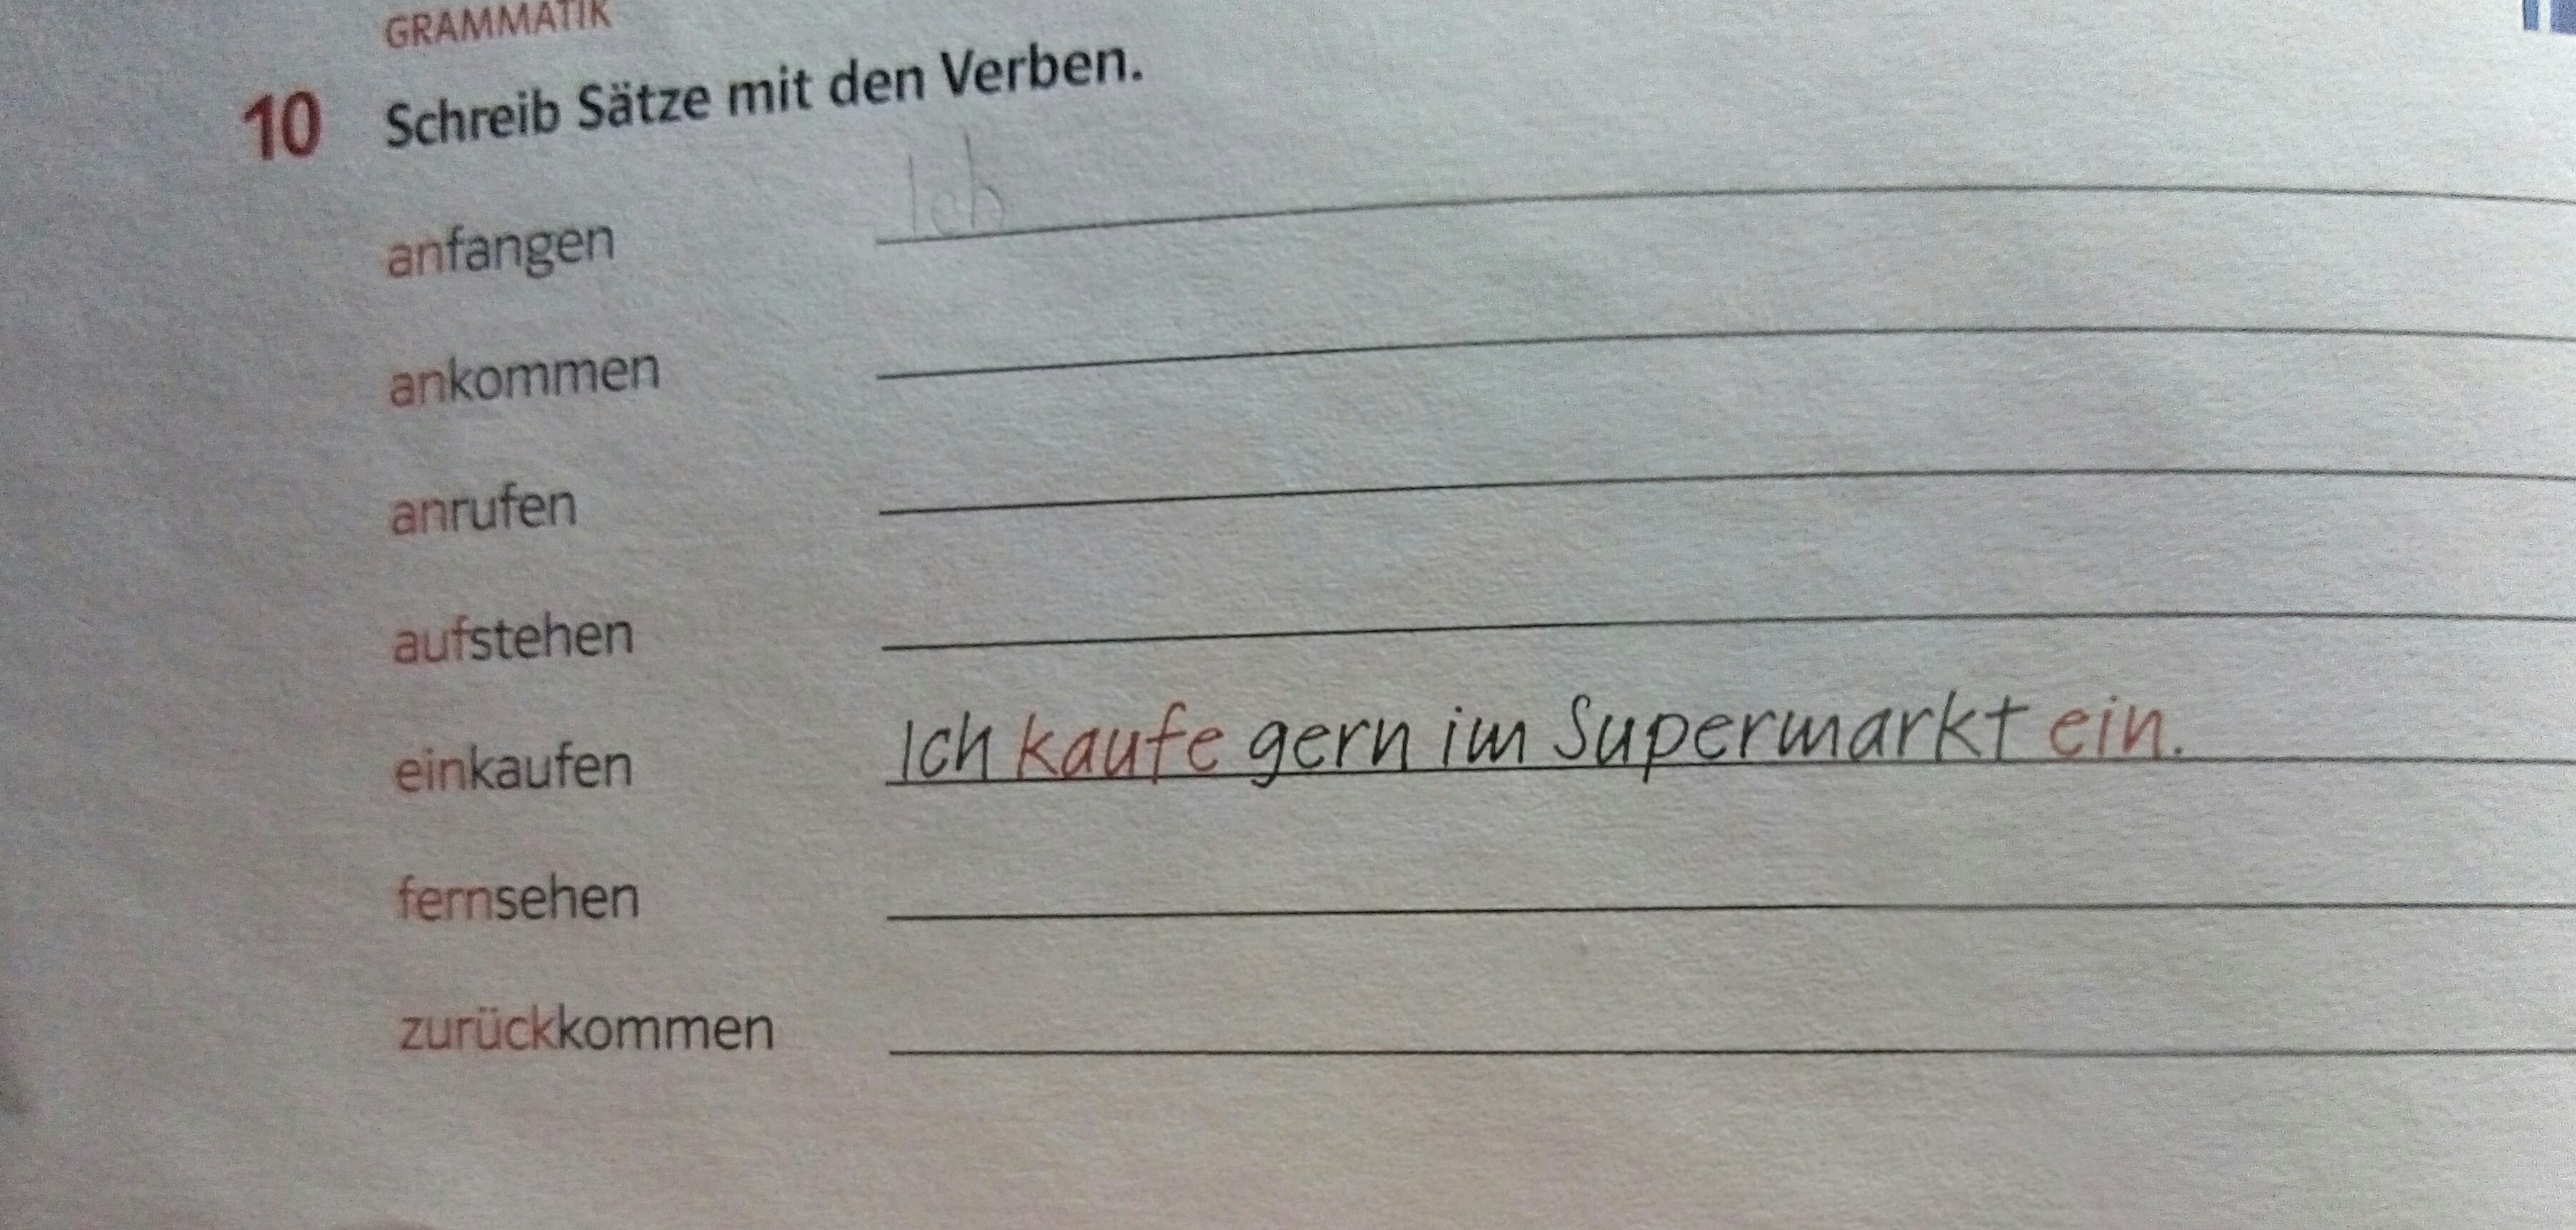 GRAMMATIK
10 Schreib Sätze mit den Verben.
anfangen Ich
ankommen
anrufen
aufstehen
einkaufen Ich kaufe gern im Supermarkt ein.
fernsehen
zurückkommen